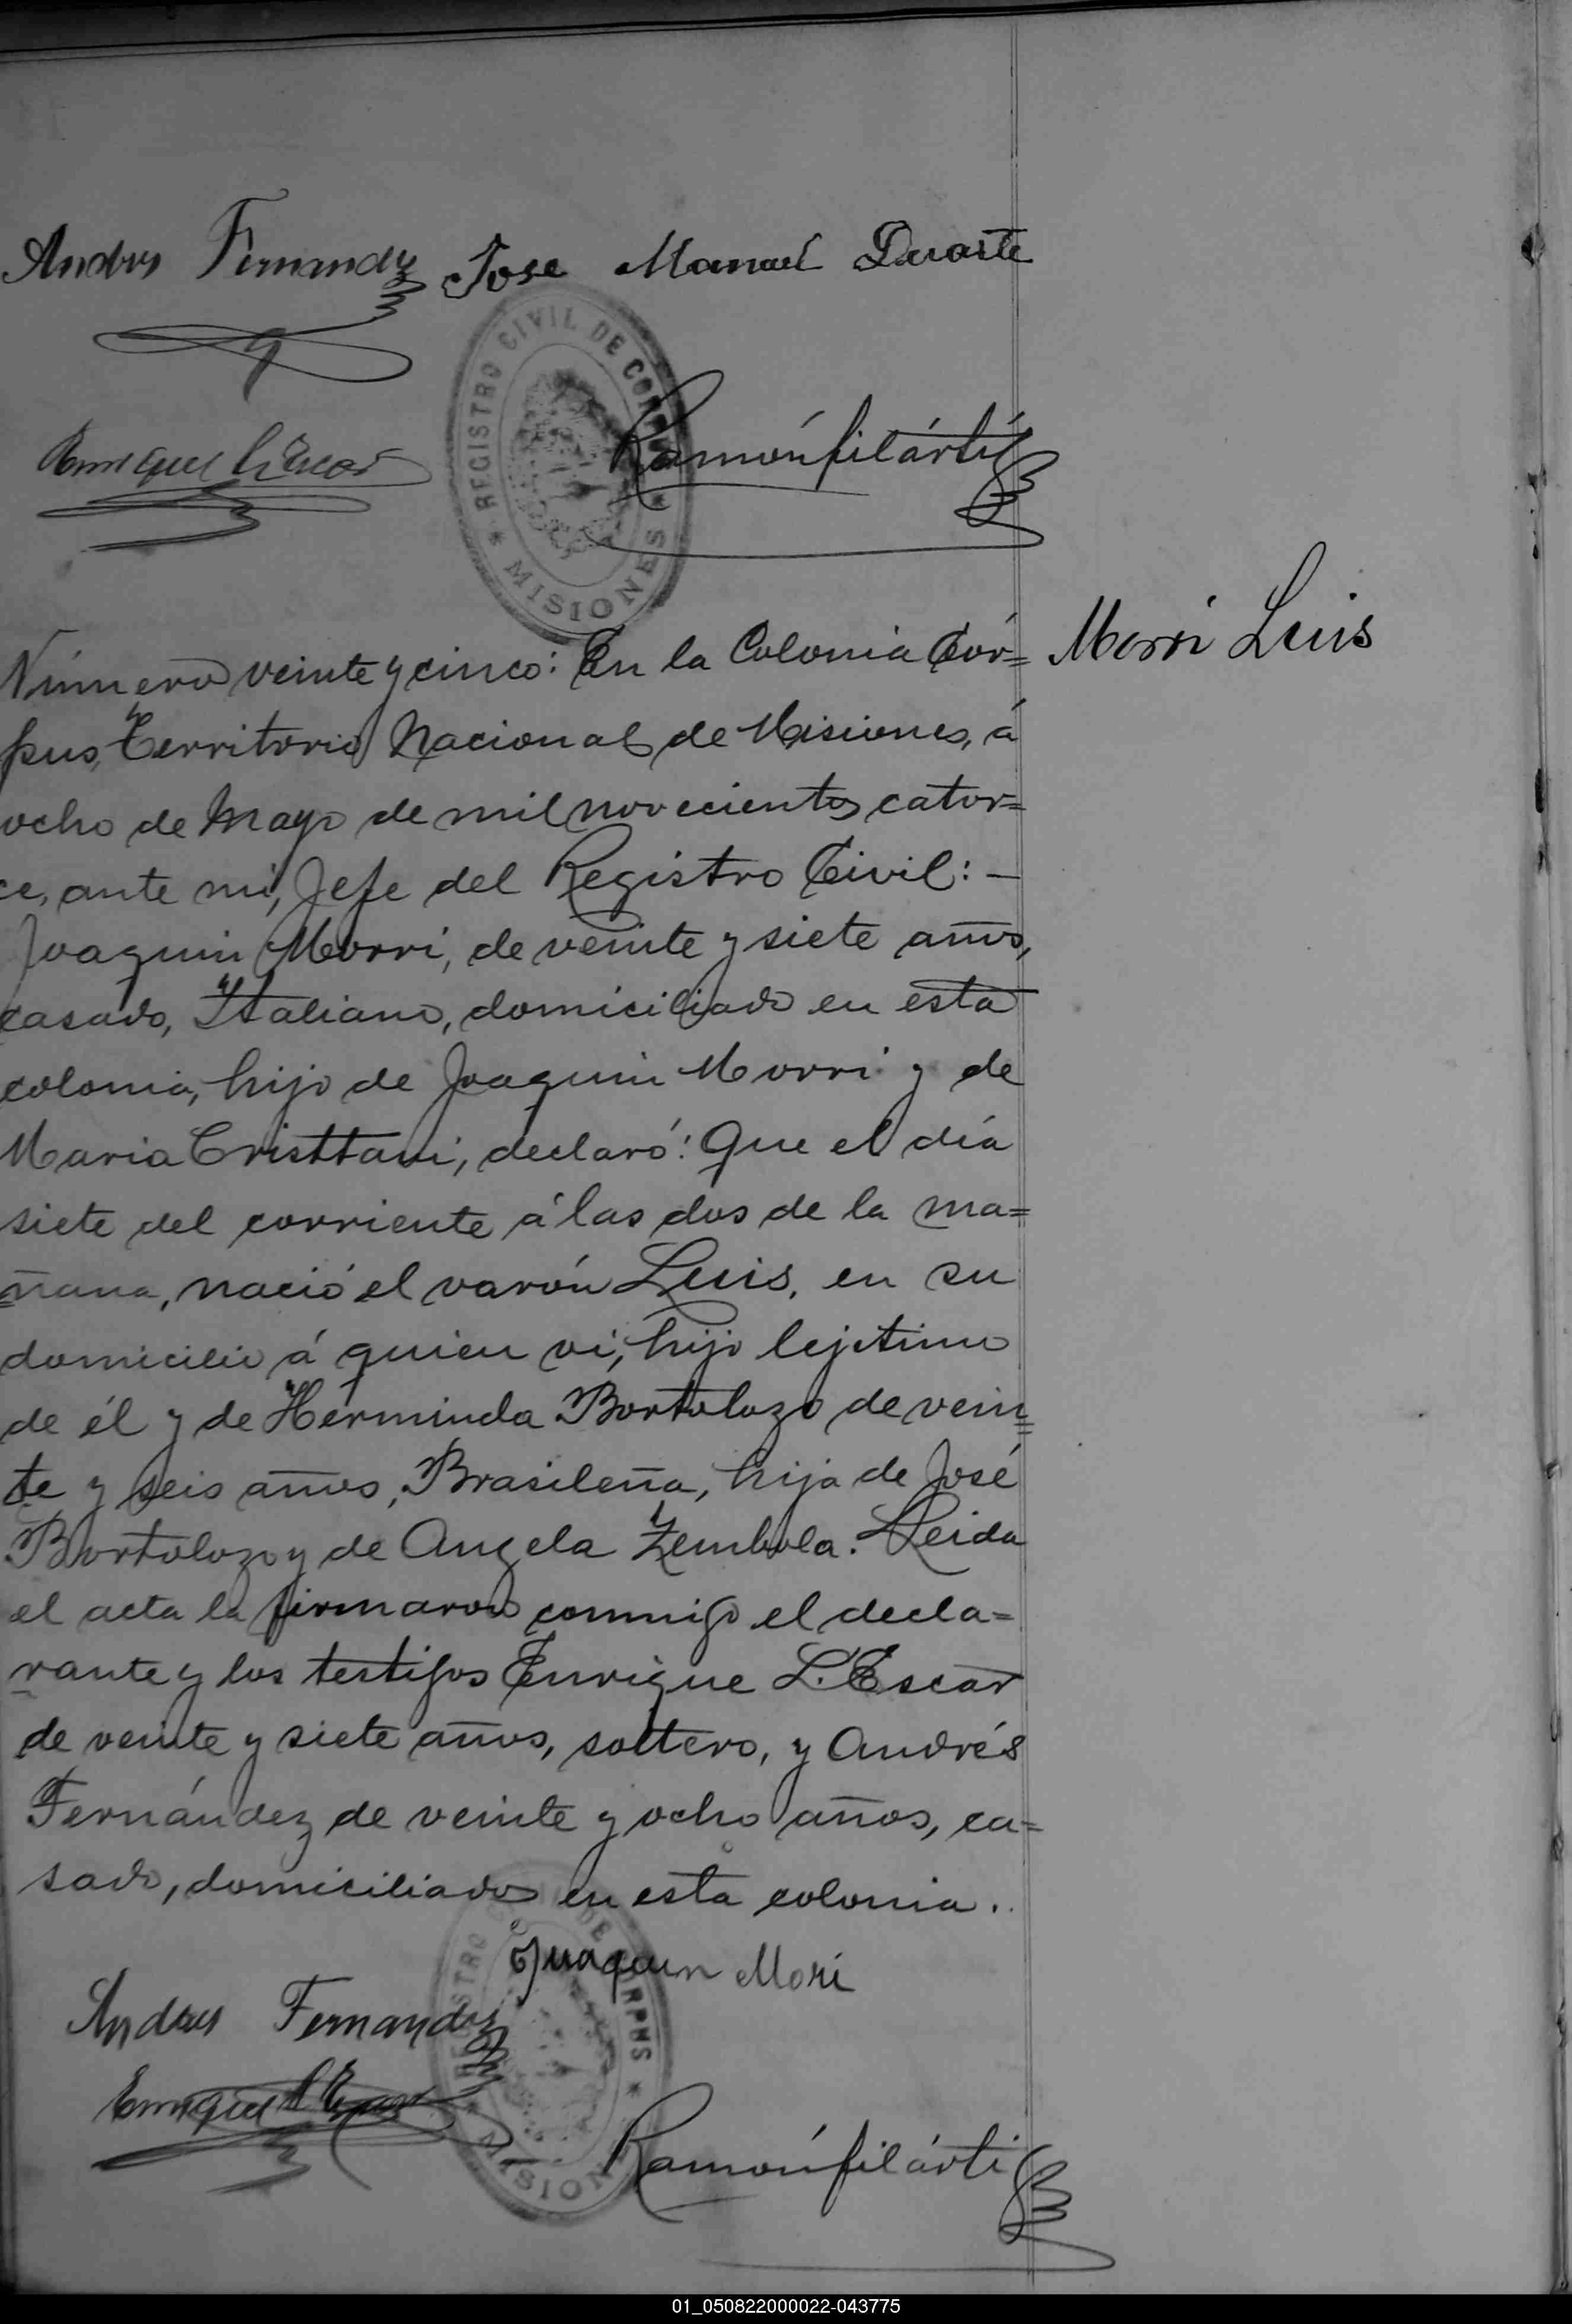 Andres Fernandz Jose Manuel Duarte
REGISTRO CIVIL DE CORPUS
* MISIONES *
Enrique L Escar
Ramón filárti
Número veinte y cinco: En la Colonia Cór= Morri Luis
pus, Territorio Nacional de Misiones, á
ocho de Mayo de mil novecientos cator=
ce, ante mi, Jefe del Registro Civil: —
Joaquin Morri, de veinte y siete años,
casado, Italiano, domiciliado en esta
colonia, hijo de Joaquin Morri y de
Maria Cristtani, declaró: Que el día
siete del corriente á las dos de la ma=
ñana, nació el varón Luis, en su
domicilio á quien vi, hijo lejitimo
de él y de Herminda Bortolozo de vein=
te y seis años, Brasileña, hija de José
Bortolozo y de Angela Zembola. Leida
el acta la firmaron conmigo el decla=
rante y los testigos Enrique L. Escar
de veinte y siete años, soltero, y Andrés
Fernández de veinte y ocho años, ca=
sado, domiciliados en esta colonia.
Juaquin Mori
Andres Fernandez
Enrique L Escar
Ramón filárti
01_050822000022-043775